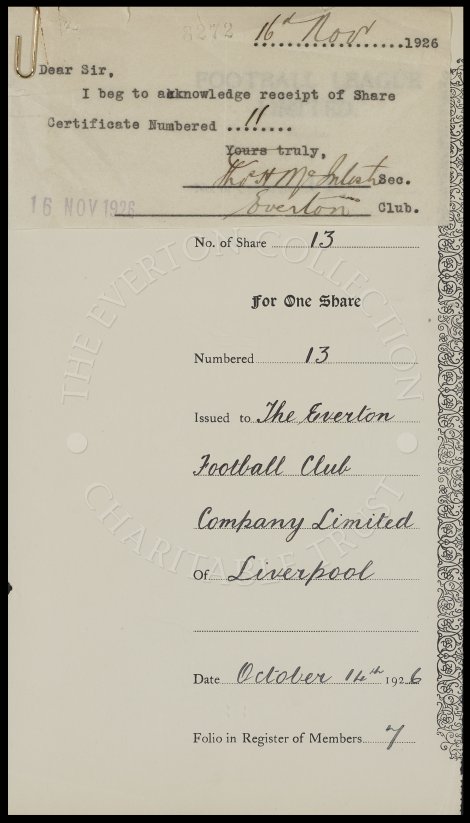 8272
16th Nov 1926
Dear Sir,
I beg to acknowledge receipt of Share
Certificate Numbered ...11.....
Yours truly,
Thos H McIntosh Sec.
16 NOV 1926 Everton Club.
No. of Share 13
For One Share
Numbered 13
Issued to The Everton
Football Club
Company Limited
Of Liverpool
Date October 14th 1926
Folio in Register of Members 7
THE EVERTON COLLECTION
CHARITABLE TRUST